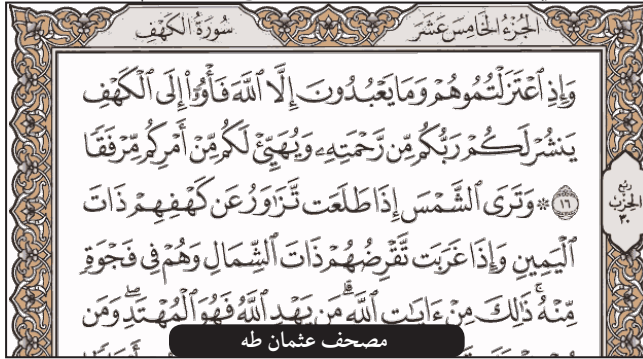 الجزء الخامس عشر
سورة الكهف
وَإِذِ ٱعۡتَزَلۡتُمُوهُمۡ وَمَا يَعۡبُدُونَ إِلَّا ٱللَّهَ فَأۡوُۥٓاْ إِلَى ٱلۡكَهۡفِ
يَنشُرۡ لَكُمۡ رَبُّكُم مِّن رَّحۡمَتِهِۦ وَيُهَيِّئۡ لَكُم مِّنۡ أَمۡرِكُم مِّرۡفَقٗا
١٦ ۞ وَتَرَى ٱلشَّمۡسَ إِذَا طَلَعَت تَّزَٰوَرُ عَن كَهۡفِهِمۡ ذَاتَ
ٱلۡيَمِينِ وَإِذَا غَرَبَت تَّقۡرِضُهُمۡ ذَاتَ ٱلشِّمَالِ وَهُمۡ فِي فَجۡوَةٖ
مِّنۡهُۚ ذَٰلِكَ مِنۡ ءَايَٰتِ ٱللَّهِۗ مَن يَهۡدِ ٱللَّهُ فَهُوَ ٱلۡمُهۡتَدِۖ وَمَن
ربع
الحزب
٣٠
مصحف عثمان طه